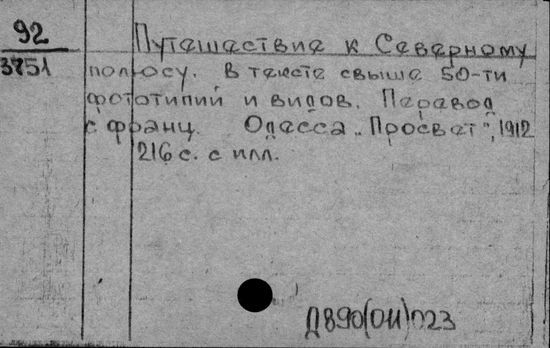 92
3751
Путешествие к Северному
полюсу. В тексте свыше 50-ти
фототипий и видов. Перевод
с франц. Одесса „Просвет", 1912
216 с. с илл.
Д890(011)023